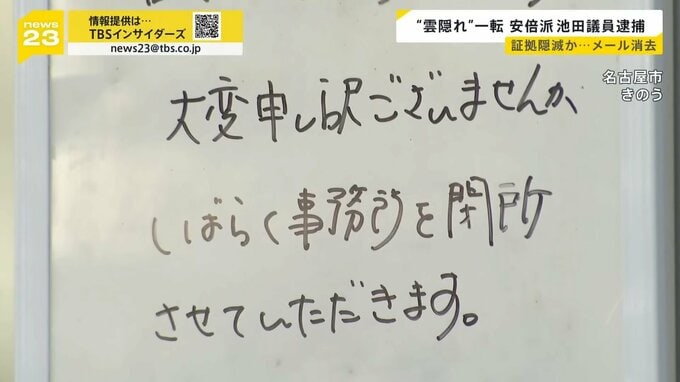 news
23
情報提供は…
TBSインサイダーズ
news23@tbs.co.jp
“雲隠れ”一転 安倍派 池田議員逮捕
証拠隠滅か…メール消去
名古屋市
きのう
大変申し訳ございませんが、
しばらく事務所を閉所
させていただきます。